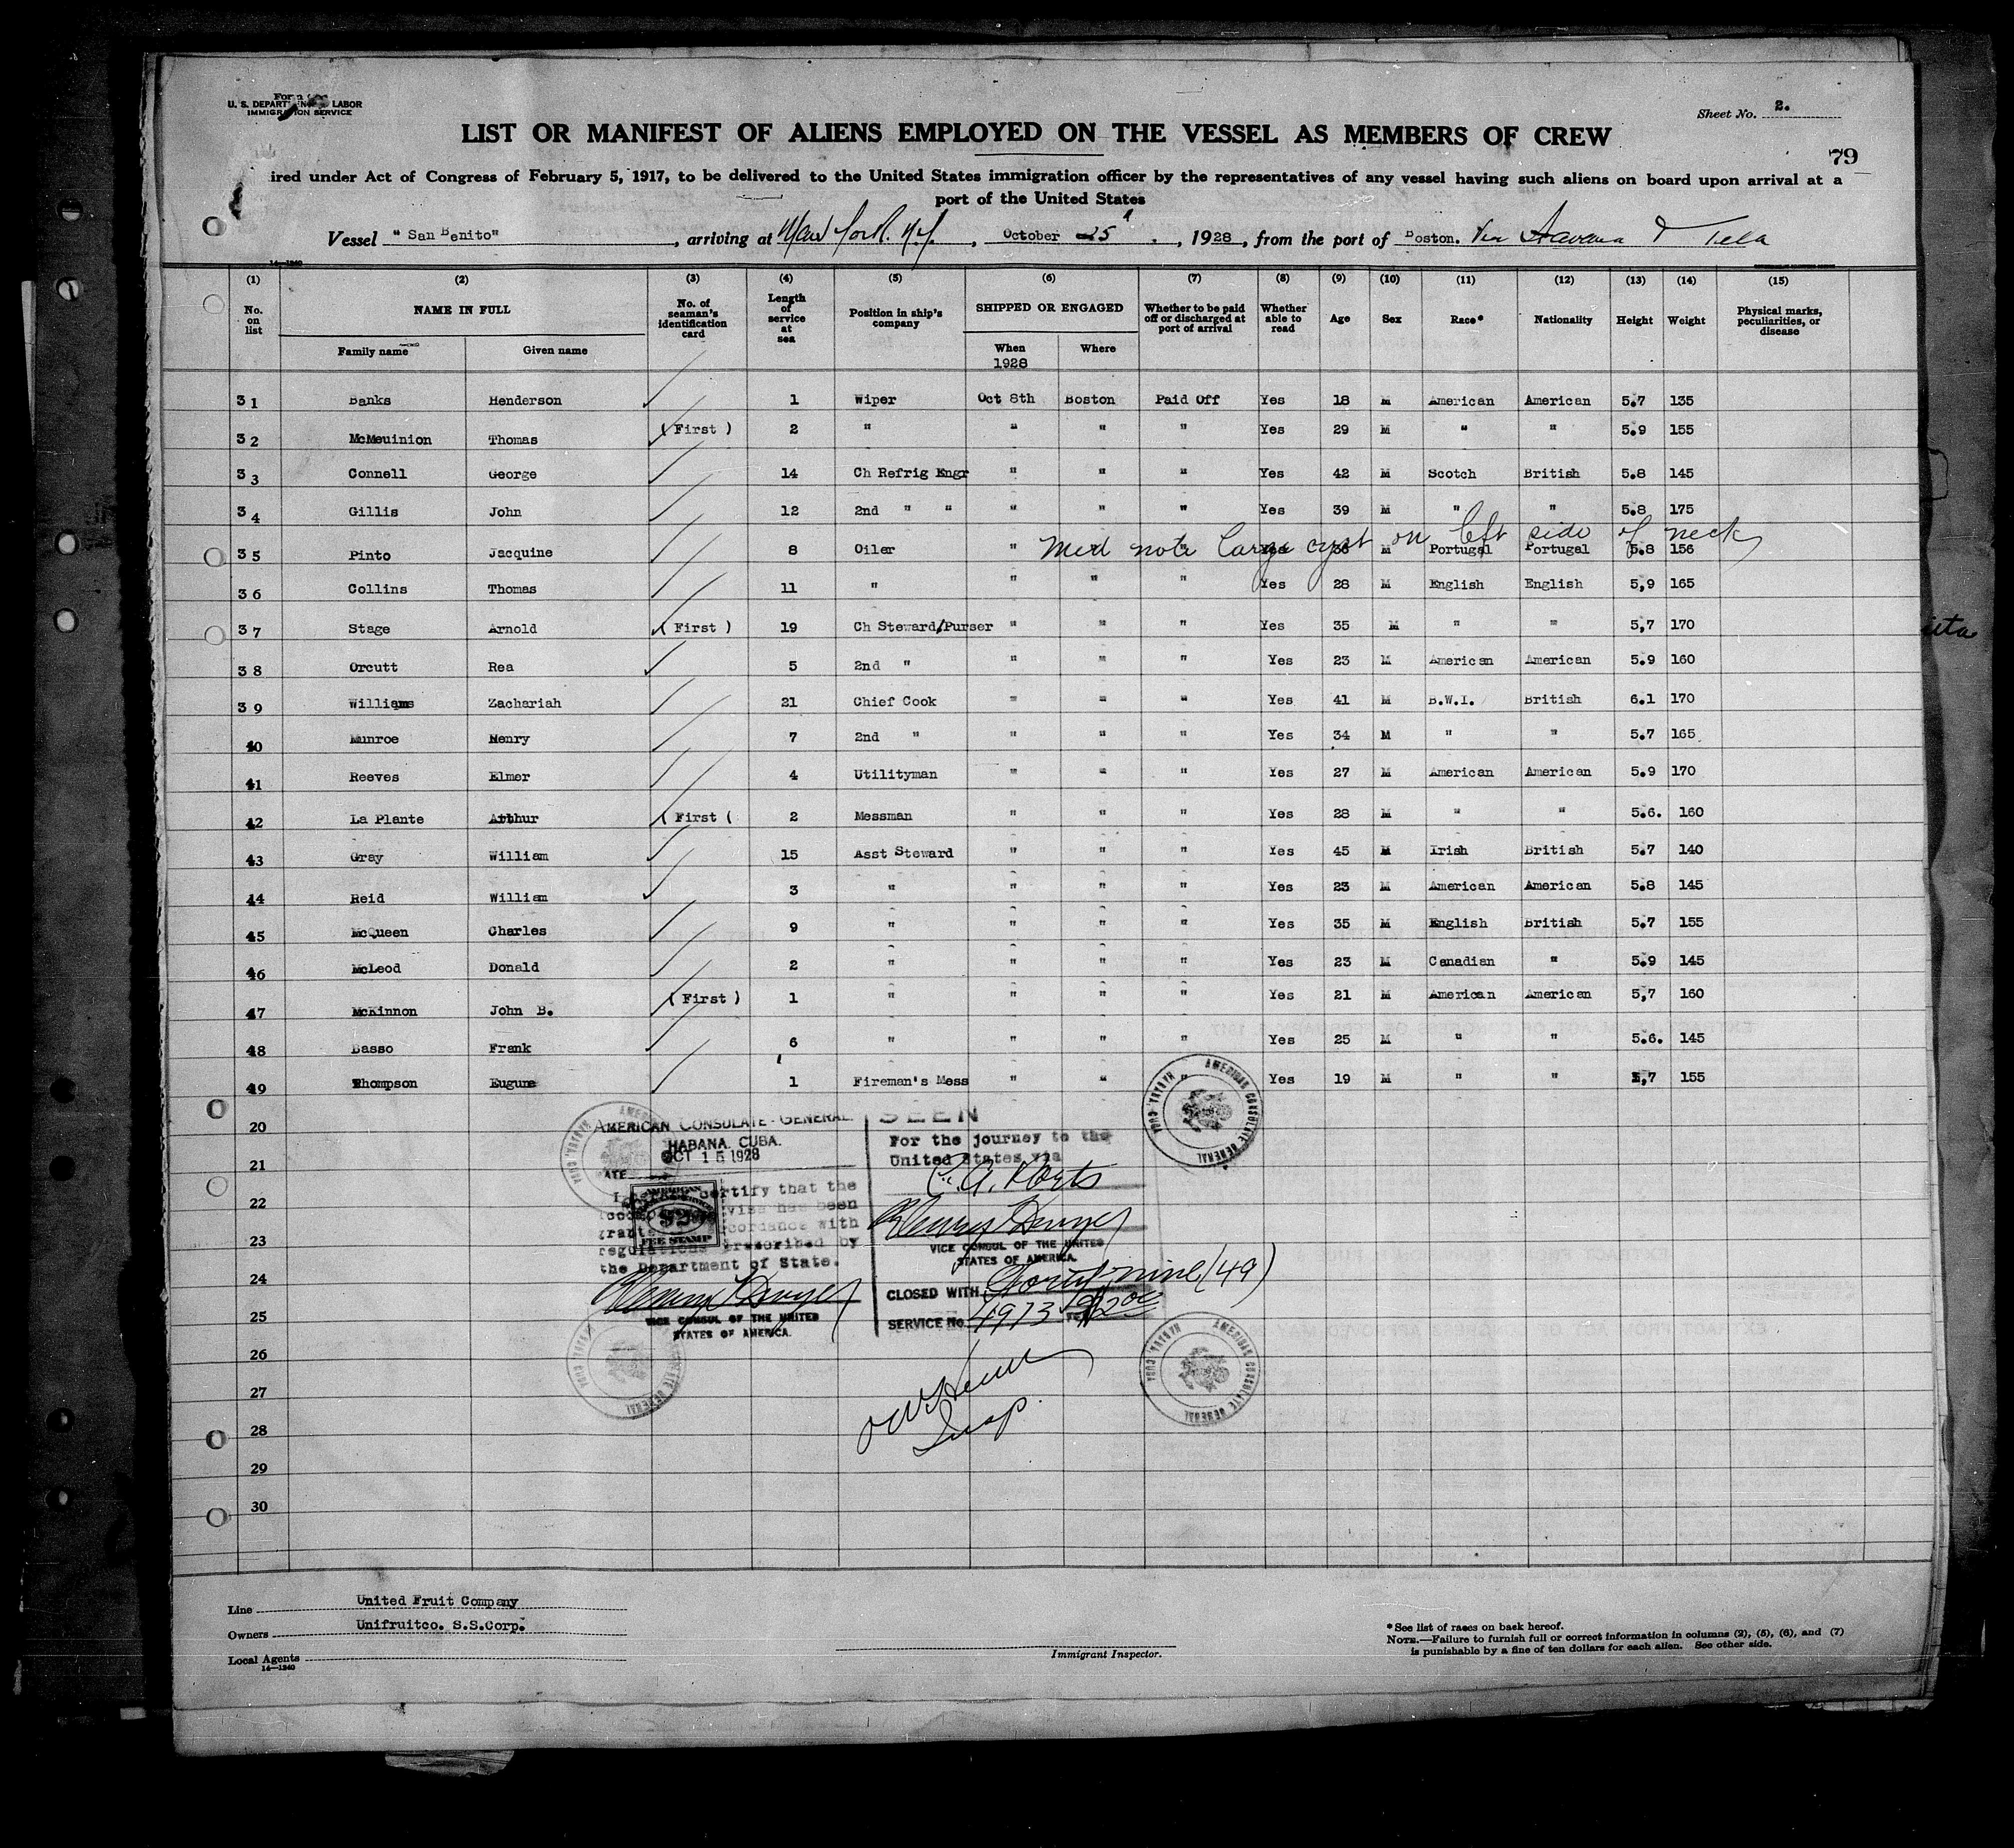 U. S. DEPARTMENT LABOR
IMMIGRATION SERVICE
Sheet No. 2.
LIST OR MANIFEST OF ALIENS EMPLOYED ON THE VESSEL AS MEMBERS OF CREW
79
ired under Act of Congress of February 5, 1917, to be delivered to the United States immigration officer by the representatives of any vessel having such aliens on board upon arrival at a
port of the United States
Vessel "San Benito", arriving at New York. N.Y., October 25, 1928, from the port of Boston. Via Havana & Tela
14—1240
(1) (2) (3) (4) (5) (6) (7) (8) (9) (10) (11) (12) (13) (14) (15)
No. on list NAME IN FULL No. of seaman's identification card Length of service at sea Position in ship's company SHIPPED OR ENGAGED Whether to be paid off or discharged at port of arrival Whether able to read Age Sex Race* Nationality Height Weight Physical marks, peculiarities, or disease
Family name Given name When Where
1928
31 Banks Henderson 1 Wiper Oct 8th Boston Paid Off Yes 18 M American American 5.7 135
32 McMeuinion Thomas (First) 2 " " " " Yes 29 M " " 5.9 155
33 Connell George 14 Ch Refrig Engr " " " Yes 42 M Scotch British 5.8 145
34 Gillis John 12 2nd " " " " " Yes 39 M " " 5.8 175
Med note large cyst on left side of neck
35 Pinto Jacquine 8 Oiler " " Yes 38 M Portugal Portugal 5.8 156
36 Collins Thomas 11 " " " " Yes 28 M English English 5,9 165
37 Stage Arnold (First) 19 Ch Steward/Purser " " " Yes 35 M " " 5,7 170
38 Orcutt Rea 5 2nd " " " " Yes 23 M American American 5.9 160
39 Williams Zachariah 21 Chief Cook " " " Yes 41 M B.W.I. British 6.1 170
40 Munroe Henry 7 2nd " " " " Yes 34 M " " 5.7 165
41 Reeves Elmer 4 Utilityman " " " Yes 27 M American American 5.9 170
42 La Plante Arthur (First ( 2 Messman " " " Yes 28 M " " 5.6. 160
43 Gray William 15 Asst Steward " " " Yes 45 M Irish British 5.7 140
44 Reid William 3 " " " " Yes 23 M American American 5.8 145
45 McQueen Charles 9 " " " " Yes 35 M English British 5.7 155
46 McLeod Donald 2 " " " " Yes 23 M Canadian " 5.9 145
47 McKinnon John B. (First) 1 " " " " Yes 21 M American American 5,7 160
48 Basso Frank 6 " " " " Yes 25 M " " 5.6. 145
49 Thompson Eugune 1 Fireman's Mess " " " Yes 19 M " " 5,7 155
20
21
22
23
24
25
26
27
28
29
30
AMERICAN CONSULATE GENERAL.
HABANA. CUBA.
OCT 15 1928
I certify that the
visa has been
granted accordance with
regulations prescribed by
the Department of State.
VICE CONSUL OF THE UNITED
STATES OF AMERICA.
AMERICAN
FEE STAMP
SEEN
For the journey to the
United States via
VICE CONSUL OF THE UNITED
STATES OF AMERICA.
CLOSED WITH Forty nine (49)
SERVICE No. 4973
AMERICAN CONSULATE GENERAL
HABANA, CUBA
AMERICAN CONSULATE GENERAL
HABANA, CUBA
Insp.
Line United Fruit Company
Owners Unifruitco. S.S.Corp.
Local Agents
14—1240
Immigrant Inspector.
*See list of races on back hereof.
NOTE.—Failure to furnish full or correct information in columns (2), (5), (6), and (7)
is punishable by a fine of ten dollars for each alien. See other side.